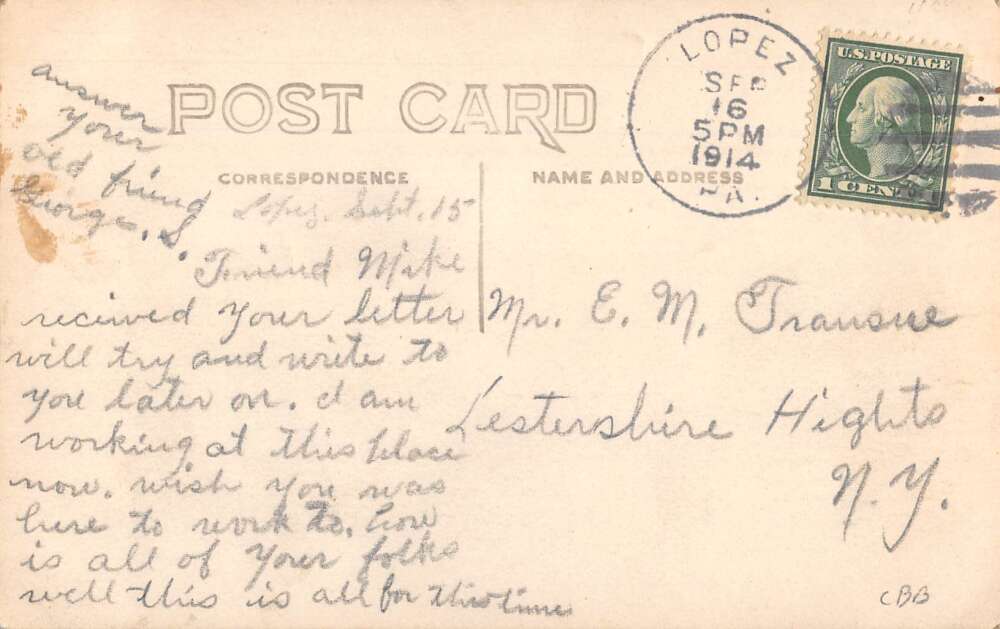 POST CARD
CORRESPONDENCE
NAME AND ADDRESS
LOPEZ
SEP
16
5 PM
1914
PA.
U.S. POSTAGE
1 CENT
Lopez, Sept. 15
Friend Mike
recieved your letter
will try and write to
you later on. I am
working at this place
now. wish you was
here to work to. how
is all of your folks
well this is all for this time
answer
your
old friend
George. S.
Mr. E. M. Transue
Lestershire Hights
N. Y.
CBB